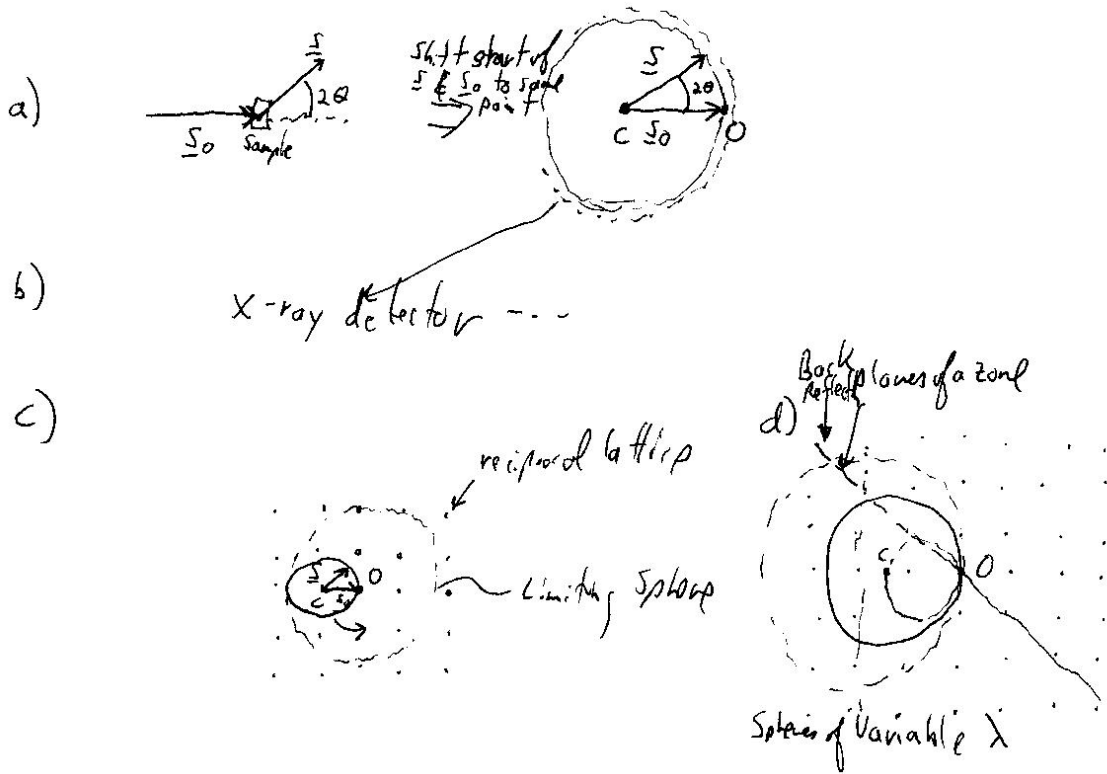 a)
S
2θ
S0
Sample
Shift start of
S & S0 to same
point
S
2θ
C S0
O
b)
X-ray detector ----
c)
reciprocal lattice
S
O
C S0
Limiting Sphere
d)
Back
Reflect
planes of a zone
C
O
Spheres of Variable λ